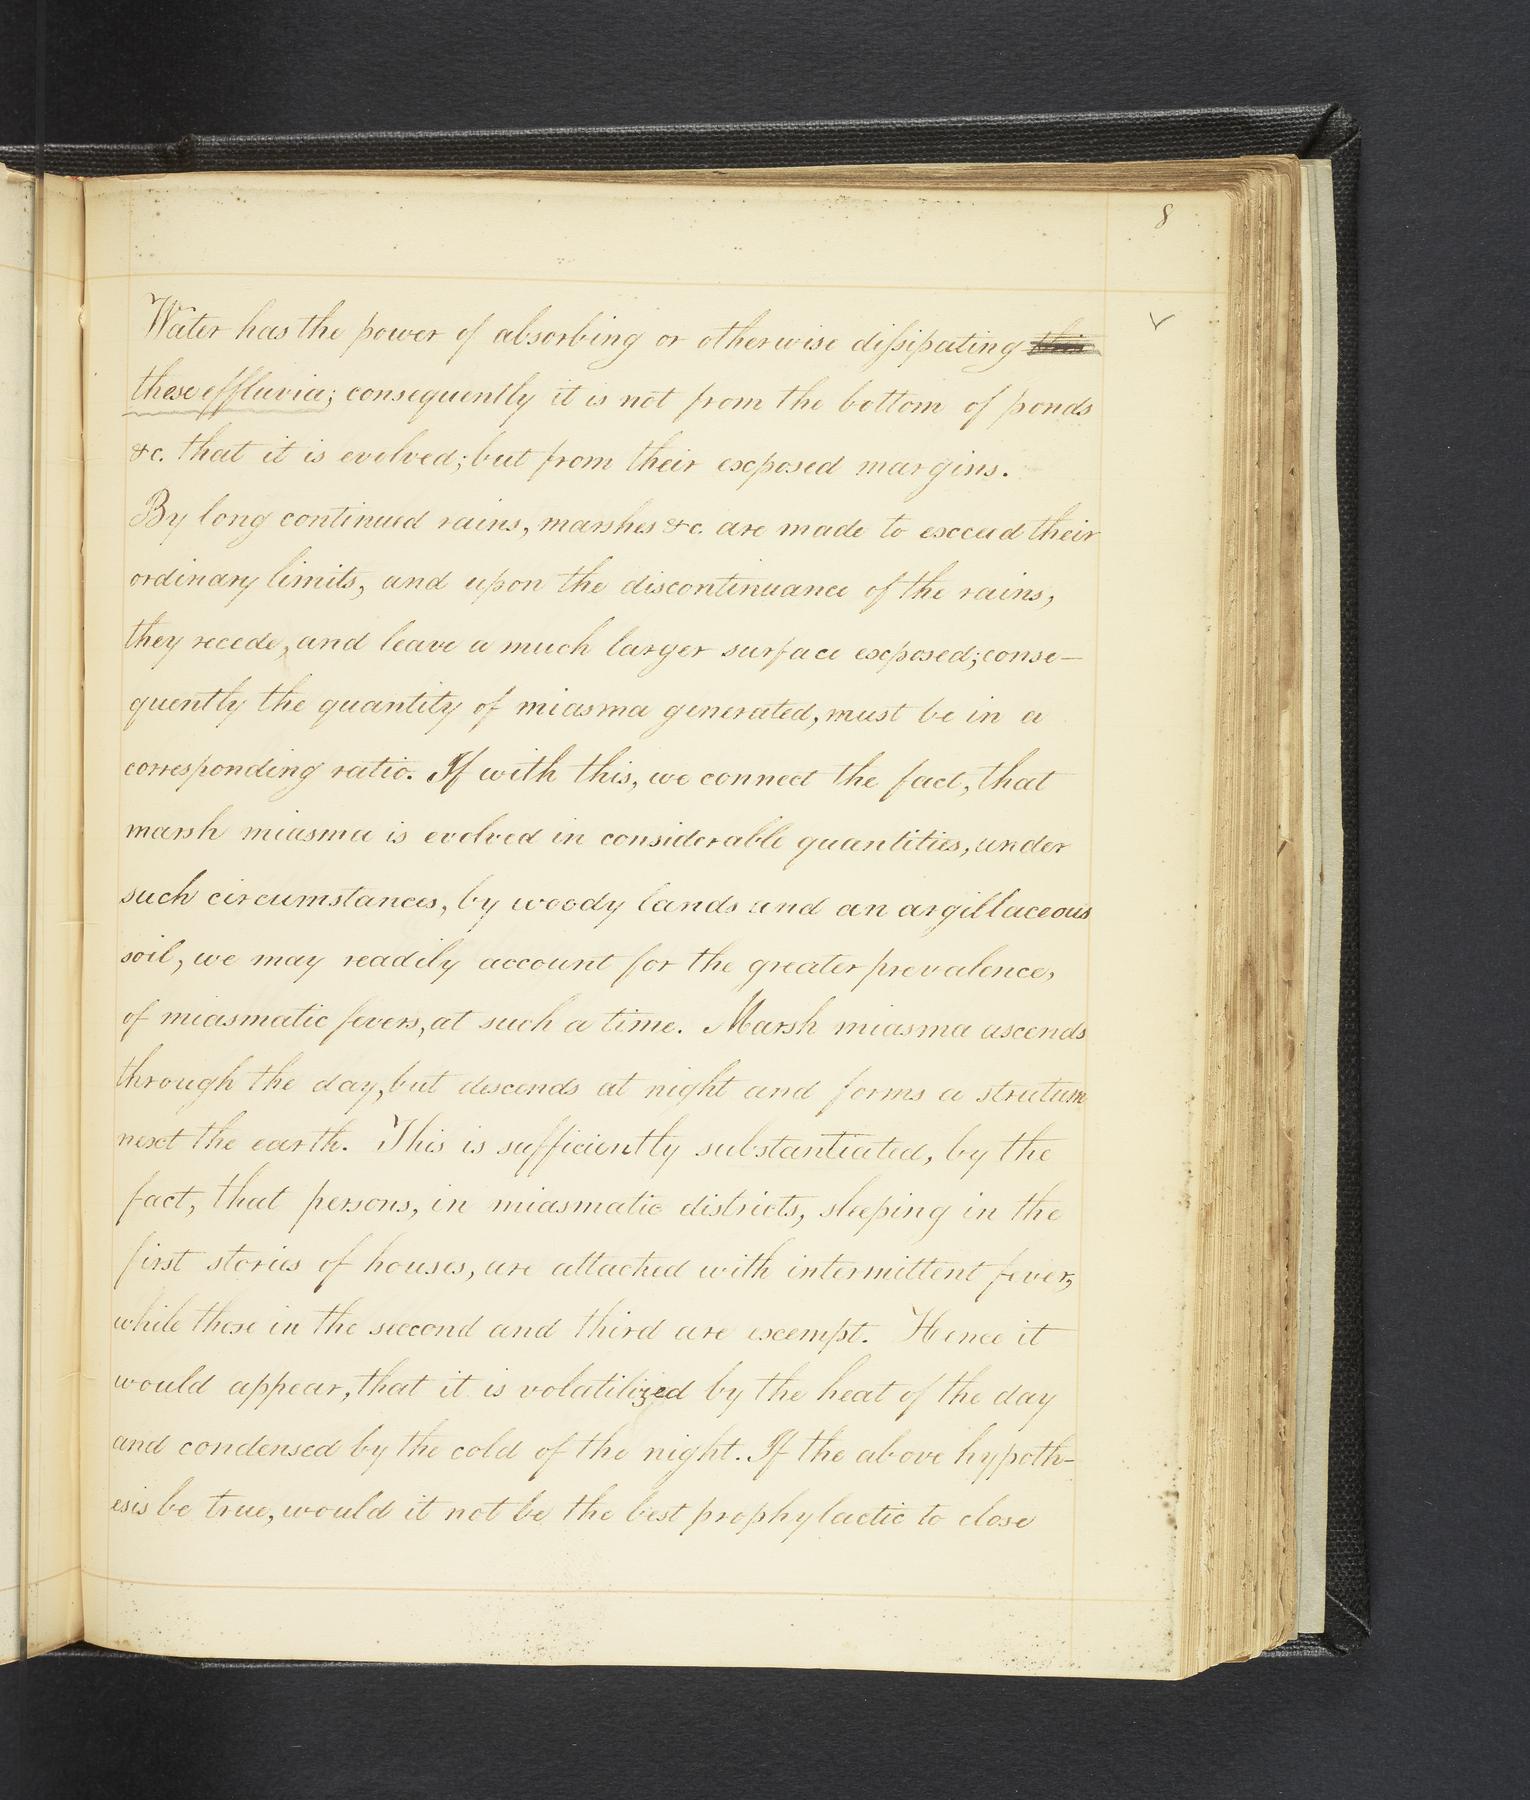 8
Water has the power of absorbing or otherwise dissipating
these effluvia; consequently it is not from the bottom of ponds
&c. that it is evolved; but from their exposed margins.
By long continued rains, marshes &c. are made to exceed their
ordinary limits, and upon the discontinuance of the rains,
they recede, and leave a much larger surface exposed; conse-
quently the quantity of miasma generated, must be in a
corresponding ratio. If with this, we connect the fact, that
marsh miasma is evolved in considerable quantities, under
such circumstances, by woody lands and an argillaceous
soil, we may readily account for the greater prevalence,
of miasmatic fevers, at such a time. Marsh miasma ascends
through the day, but descends at night and forms a stratum
next the earth. This is sufficiently substantiated, by the
fact, that persons, in miasmatic districts, sleeping in the
first stories of houses, are attacked with intermittent fever,
while those in the second and third are exempt. Hence it
would appear, that it is volatilized by the heat of the day
and condensed by the cold of the night. If the above hypoth-
esis be true, would it not be the best prophylactic to close